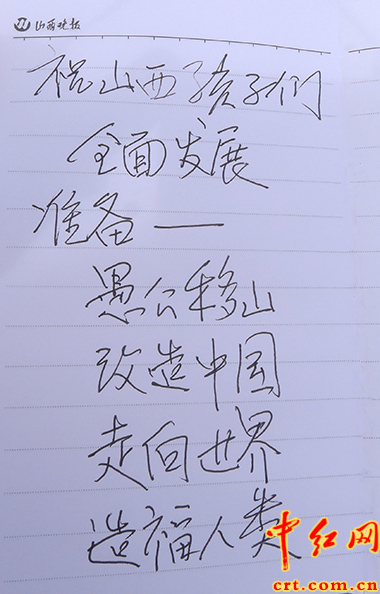 山西晚报
祝山西孩子们
全面发展
准备——
愚公移山
改造中国
走向世界
造福人类
中红网
crt.com.cn